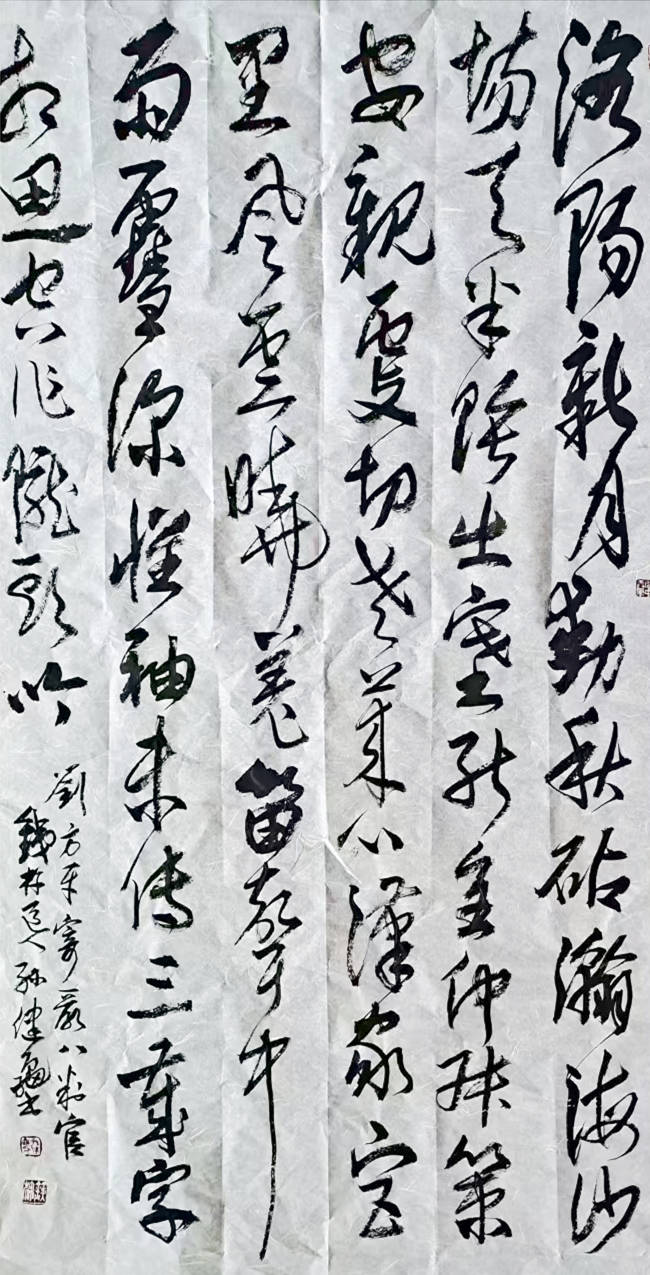 洛陽新月動秋砧瀚海沙
場天半陰出塞能全仲叔策
安親更切老萊心漢家宮
里風雲曉羌笛聲中
雨雪深懷袖未傳三歲字
相思空作隴頭吟
劉方平寄嚴八判官
道人孫健